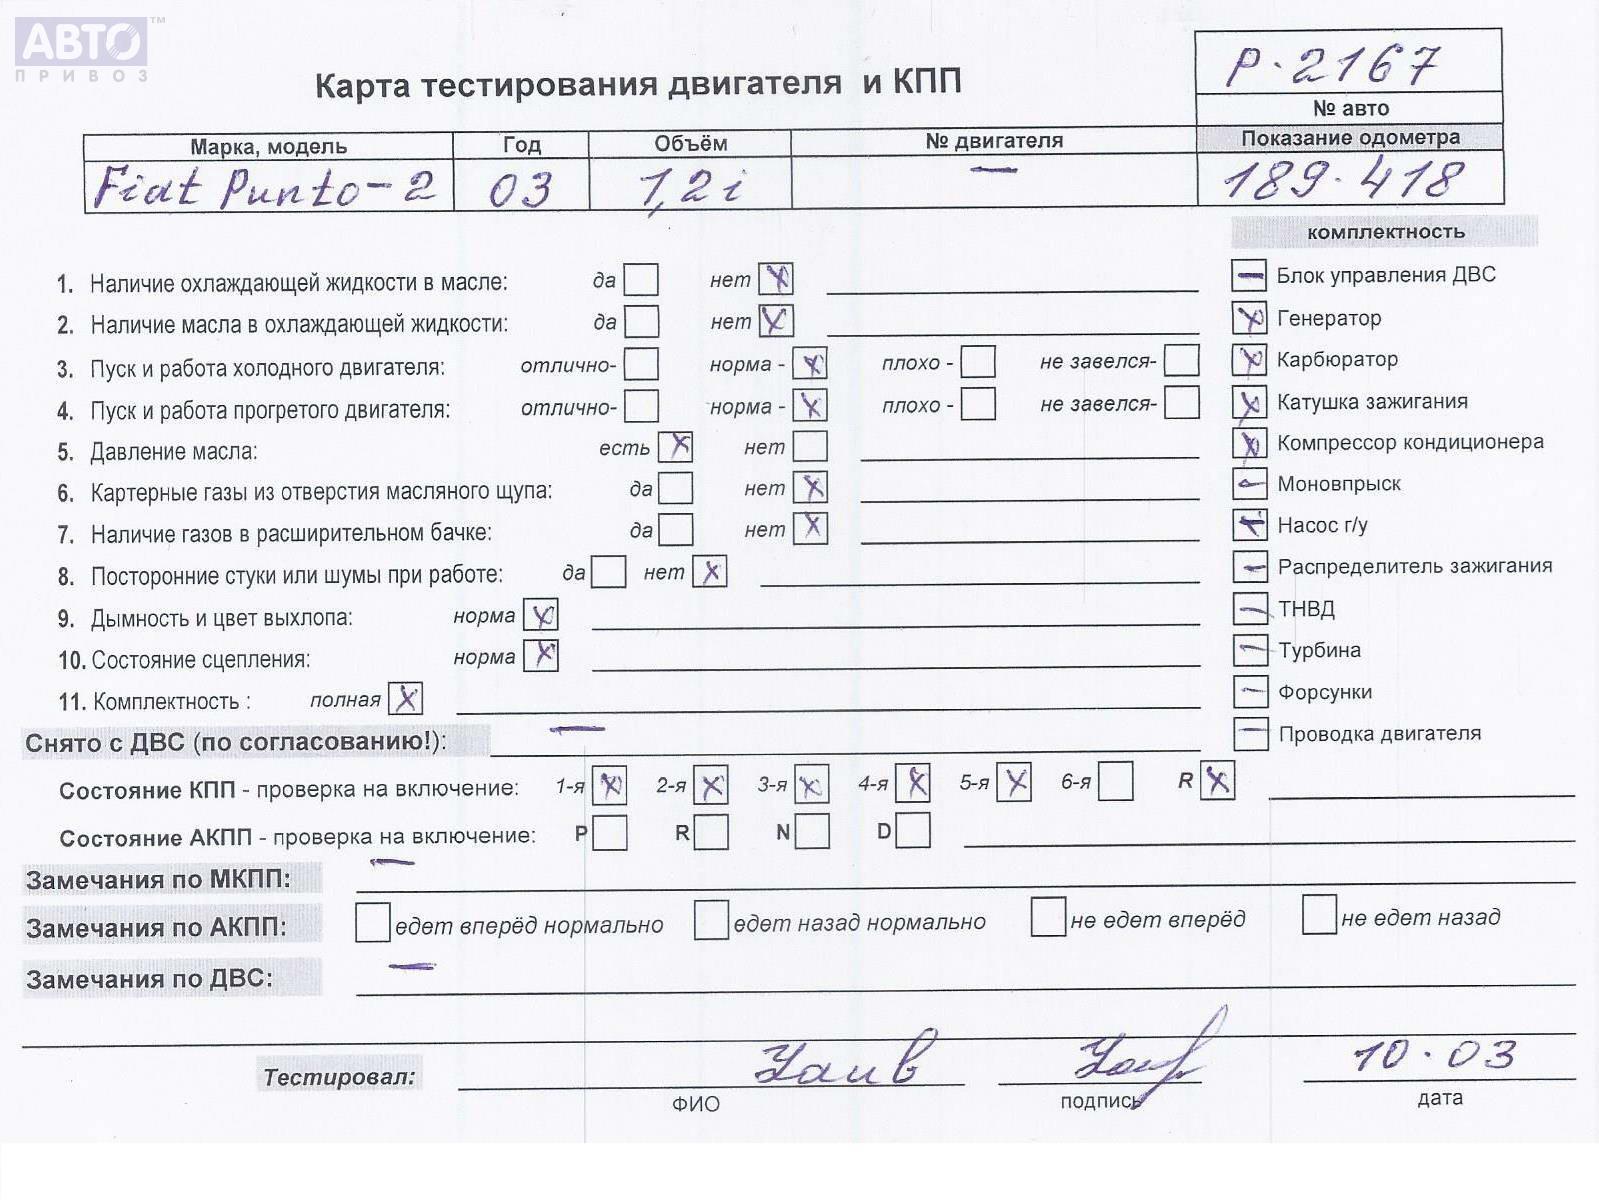 АВТО™
ПРИВОЗ
Карта тестирования двигателя и КПП
P-2167
№ авто
Марка, модель Год Объём № двигателя Показание одометра
Fiat Punto-2 03 1,2i — 189.418
комплектность
1. Наличие охлаждающей жидкости в масле: да нет X
2. Наличие масла в охлаждающей жидкости: да нет X
3. Пуск и работа холодного двигателя: отлично- норма - X плохо - не завелся-
4. Пуск и работа прогретого двигателя: отлично- норма - X плохо - не завелся-
5. Давление масла: есть X нет
6. Картерные газы из отверстия масляного щупа: да нет X
7. Наличие газов в расширительном бачке: да нет X
8. Посторонние стуки или шумы при работе: да нет X
9. Дымность и цвет выхлопа: норма X
10. Состояние сцепления: норма X
11. Комплектность : полная X
— Блок управления ДВС
X Генератор
X Карбюратор
X Катушка зажигания
X Компрессор кондиционера
— Моновпрыск
X Насос г/у
— Распределитель зажигания
— ТНВД
— Турбина
— Форсунки
— Проводка двигателя
Снято с ДВС (по согласованию!): —
Состояние КПП - проверка на включение: 1-я X 2-я X 3-я X 4-я X 5-я X 6-я R X
Состояние АКПП - проверка на включение: P R N D
Замечания по МКПП: —
Замечания по АКПП: едет вперёд нормально едет назад нормально не едет вперёд не едет назад
Замечания по ДВС: —
Тестировал: 10.03
ФИО подпись дата